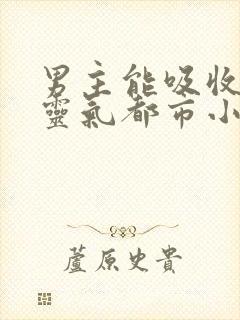 男主能吸收
靈氣都市小
蘆原史貴